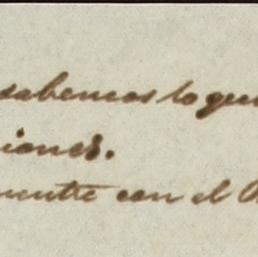 sabemos lo que
iones.
mente con el